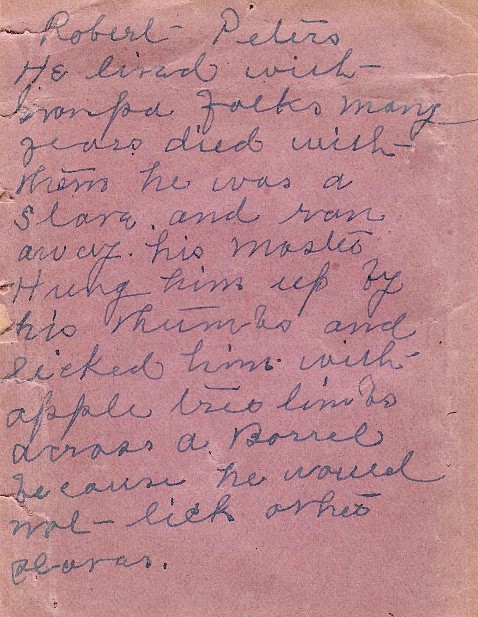 Robert Peters
He lived with
Granpa folks many
years died with
them he was a
Slave. and ran
away. his master
Hung him up by
his thumbs and
licked him with
apple tree limbs
across a Barrel
because he would
not lick other
slaves.